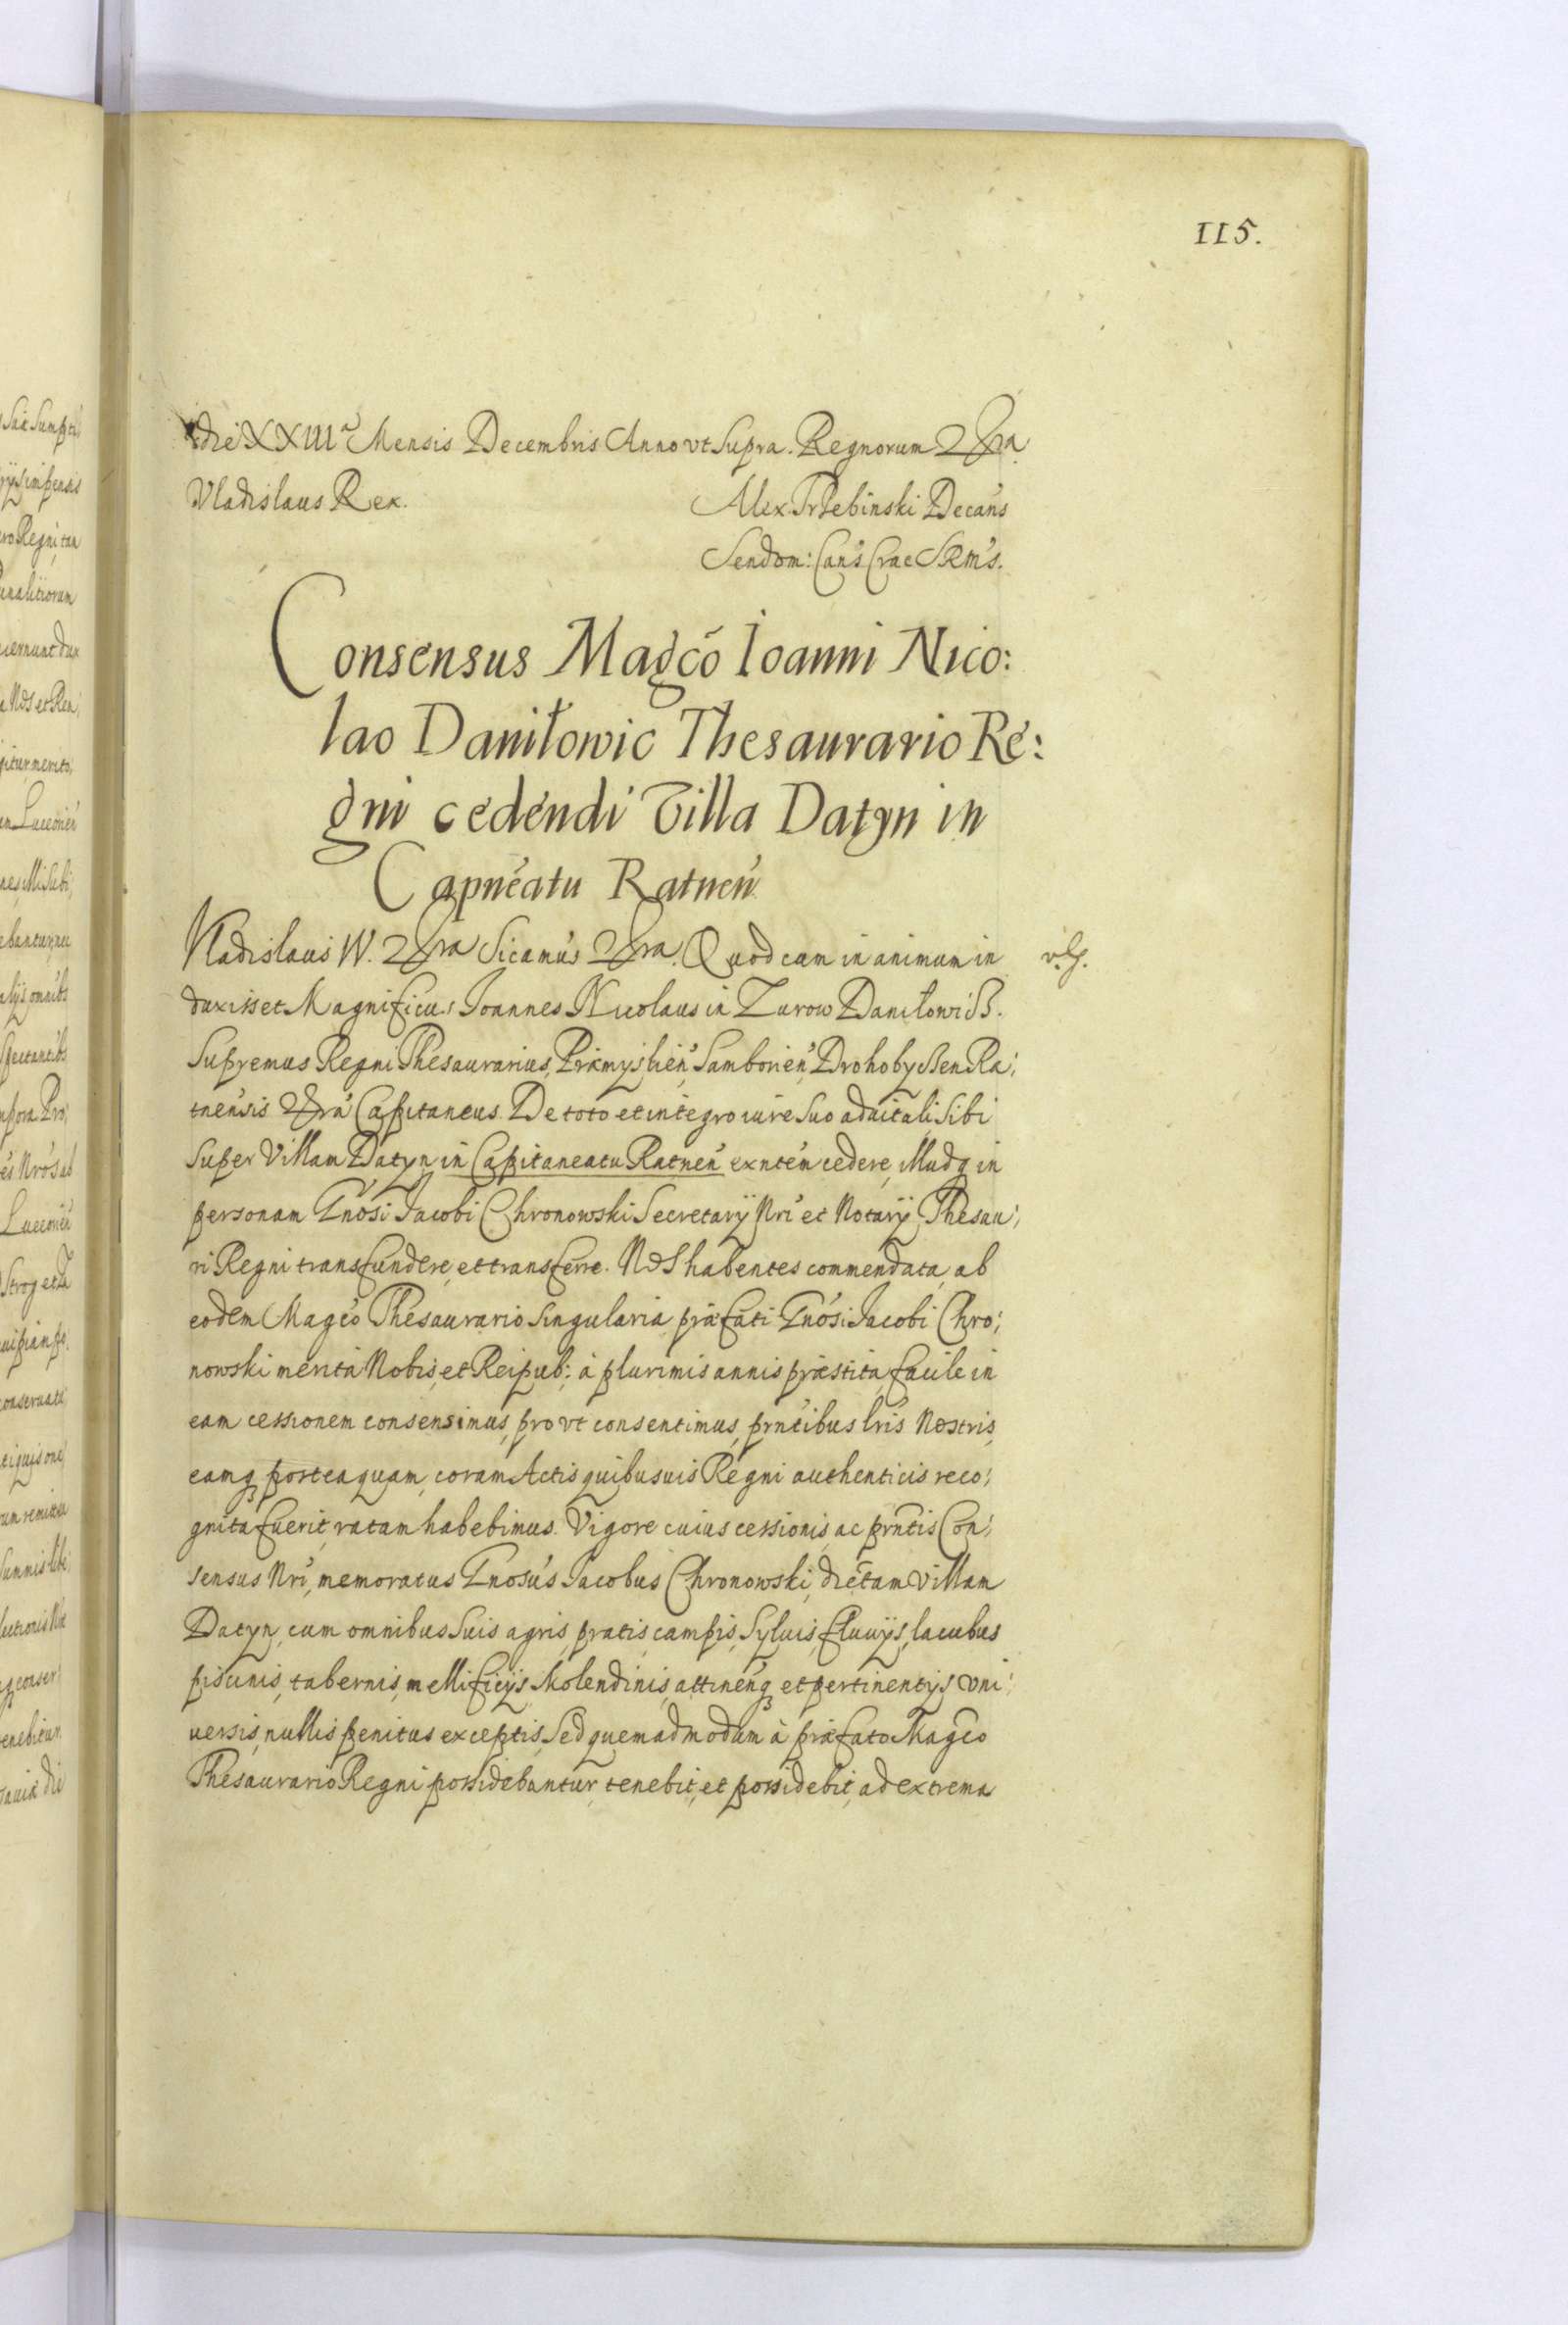 115.
die XXIIIa Mensis Decembris Anno vt Supra. Regnorum &ra
Vladislaus Rex. Alex Trzebinski Decan's
Sendom: Can's Crac SRM's.
Consensus Magco Ioanni Nico:
lao Daniłowic Thesaurario Re:
gni cedendi Villa Datyn in
Capneatu Ratnen
Vladislaus IV. &ra Sicamus &ra. Quod cum in animum in
duxisset Magnificus Joannes Nicolaus in Zurow Daniłowiß.
Supremus Regni Thesaurarius, Præmyslien, Samborien, Drohobyßen Ra:
tnensis &ra Capitaneus. De toto et integro iure suo aduitali, sibi
super Villam Datyn in Capitaneatu Ratnen exnten cedere, illudq in
personam Gnosi Jacobi Chronowski Secretarÿ Nri et Notarÿ Thesau:
ri Regni transfundere, et transferre. Nos habentes commendata, ab
eodem Magco Thesaurario singularia præfati Gnosi Jacobi Chro:
nowski merita Nobis, et Reipub: à plurimis annis præstita, facile in
eam cessionem consensimus, pro vt consentimus, prntibus lris Nostris,
eamq posteaquam, coram Actis quibusuis Regni authenticis reco:
gnita fuerit, ratam habebimus. Vigore cuius cessionis, ac prntis Con:
sensus Nri, memoratus Gnosus Jacobus Chronowski, dictam Villam
Datyn, cum omnibus suis agris, pratis, campis, syluis, fluuÿs, lacubus
piscinis, tabernis, mellificÿs, Molendinis, attinenq et pertinentÿs vni:
uersis, nullis penitus exceptis, sed quemadmodum à præfato Magco
Thesaurario Regni possidebantur, tenebit, et possidebit, ad extrema